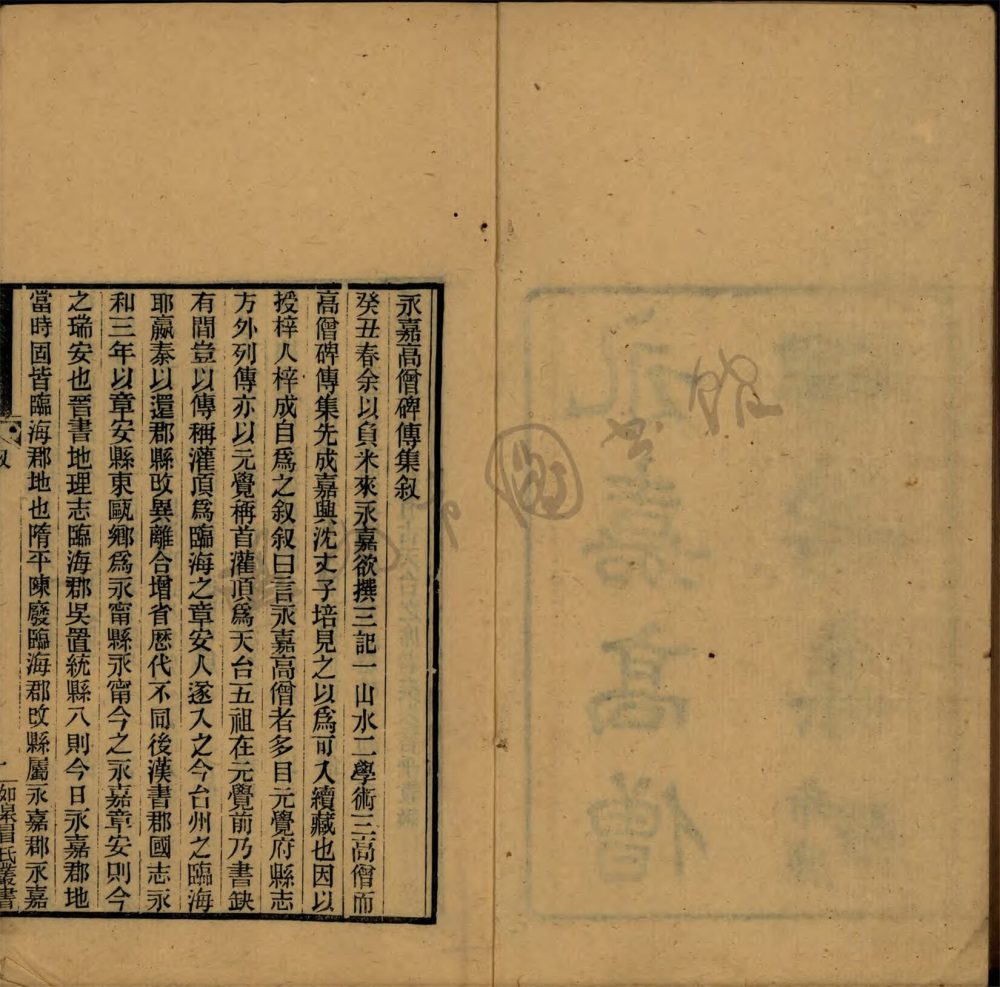 永嘉高僧碑傳集叙
癸丑春余以負米來永嘉欲撰三記一山水二學術三高僧而
高僧碑傳集先成嘉興沈丈子培見之以爲可入續藏也因以
授梓人梓成自爲之叙叙曰言永嘉高僧者多目元覺府縣志
方外列傳亦以元覺稱首灌頂爲天台五祖在元覺前乃書缺
有間豈以傳稱灌頂爲臨海之章安人遂入之今台州之臨海
耶嬴秦以還郡縣改異離合增省歷代不同後漢書郡國志永
和三年以章安縣東甌鄉爲永甯縣永甯今之永嘉章安則今
之瑞安也晉書地理志臨海郡吳置統縣八則今日永嘉郡地
當時固皆臨海郡地也隋平陳廢臨海郡改縣屬永嘉郡永嘉
叙
一
如皋冒氏叢書